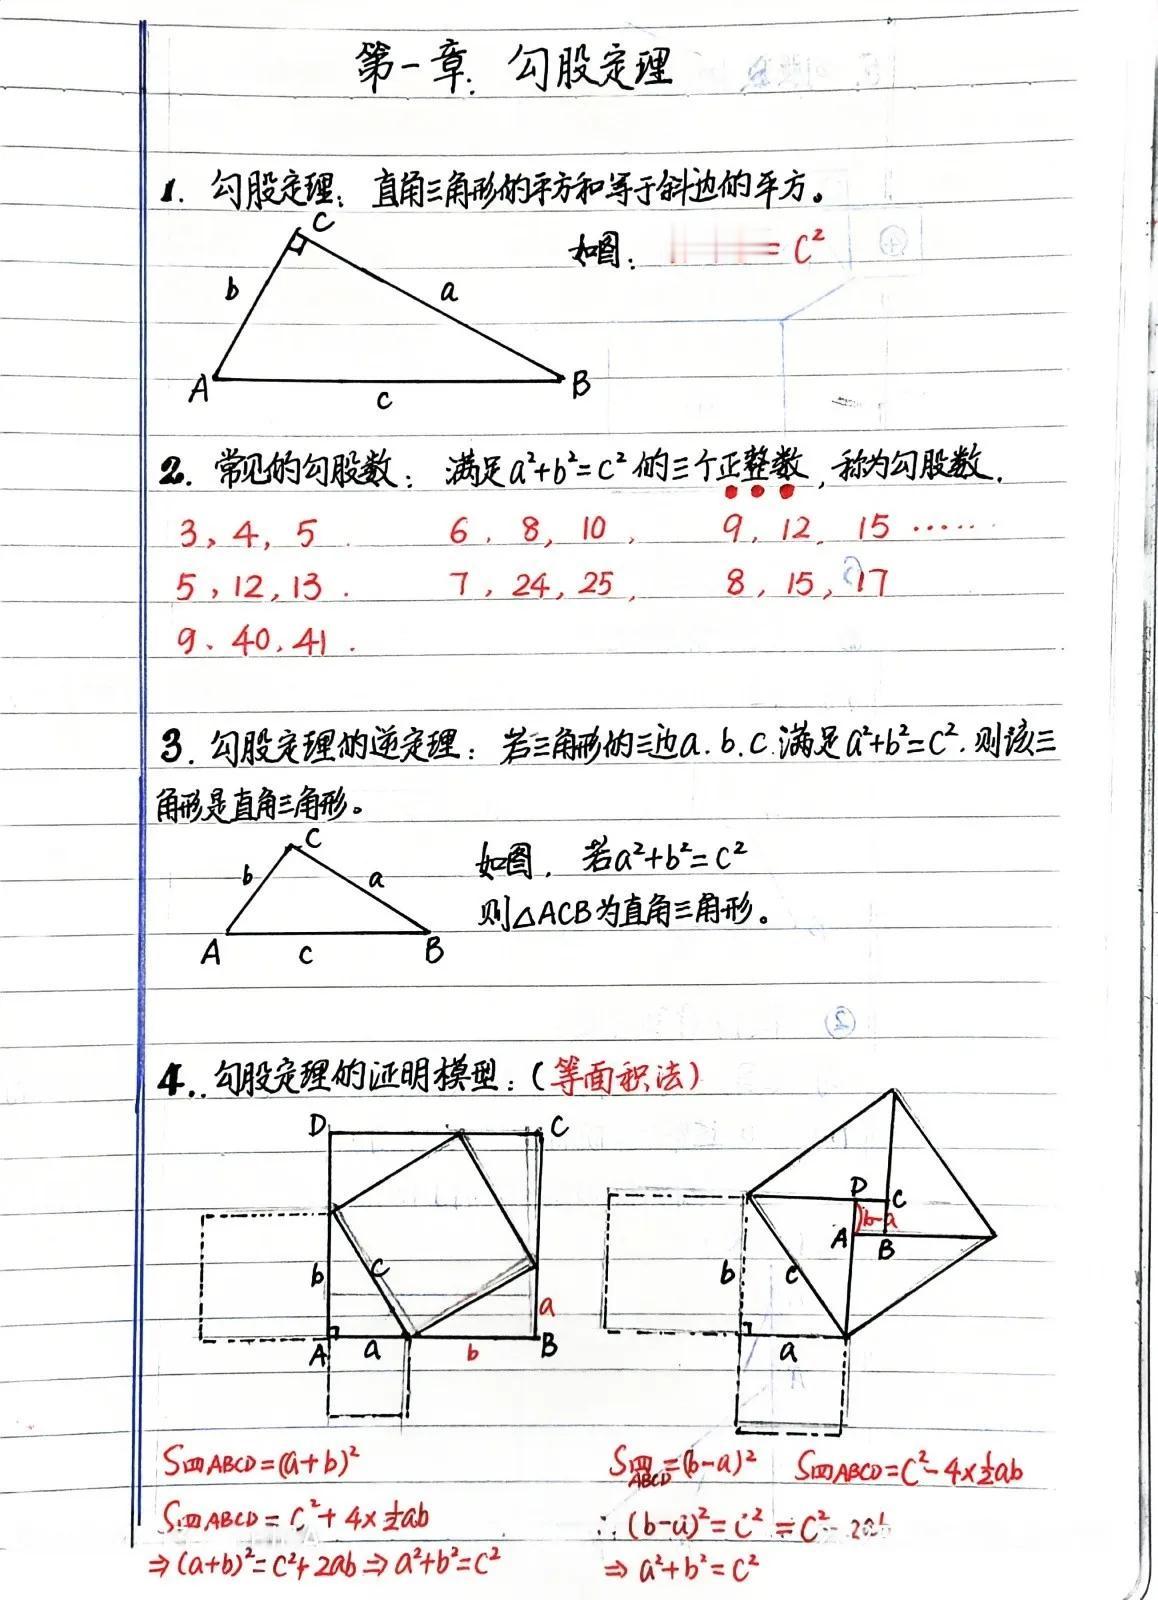 第一章. 勾股定理
1. 勾股定理: 直角三角形的平方和等于斜边的平方。
如图: = c²
C
b
a
A
B
c
2. 常见的勾股数: 满足a²+b²=c²的三个正整数, 称为勾股数.
3, 4, 5. 6, 8, 10, 9, 12, 15 ······
5, 12, 13. 7, 24, 25, 8, 15, 17
9、40, 41.
3. 勾股定理的逆定理: 若三角形的三边a.b.c.满足a²+b²=c².则该三
角形是直角三角形。
C
b
a
A
c
B
如图, 若a²+b²=c²
则△ACB为直角三角形。
②
4.. 勾股定理的证明模型: (等面积法)
D
C
b
c
a
A
a
b
B
D
C
b-a
A
B
b
c
a
S四ABCD=(a+b)²
S四ABCD=c²+4×½ab
⇒(a+b)²=c²+2ab⇒a²+b²=c²
S四ABCD=(b-a)² S四ABCD=c²-4×½ab
∴(b-a)²=c²=c²-2ab
⇒a²+b²=c²